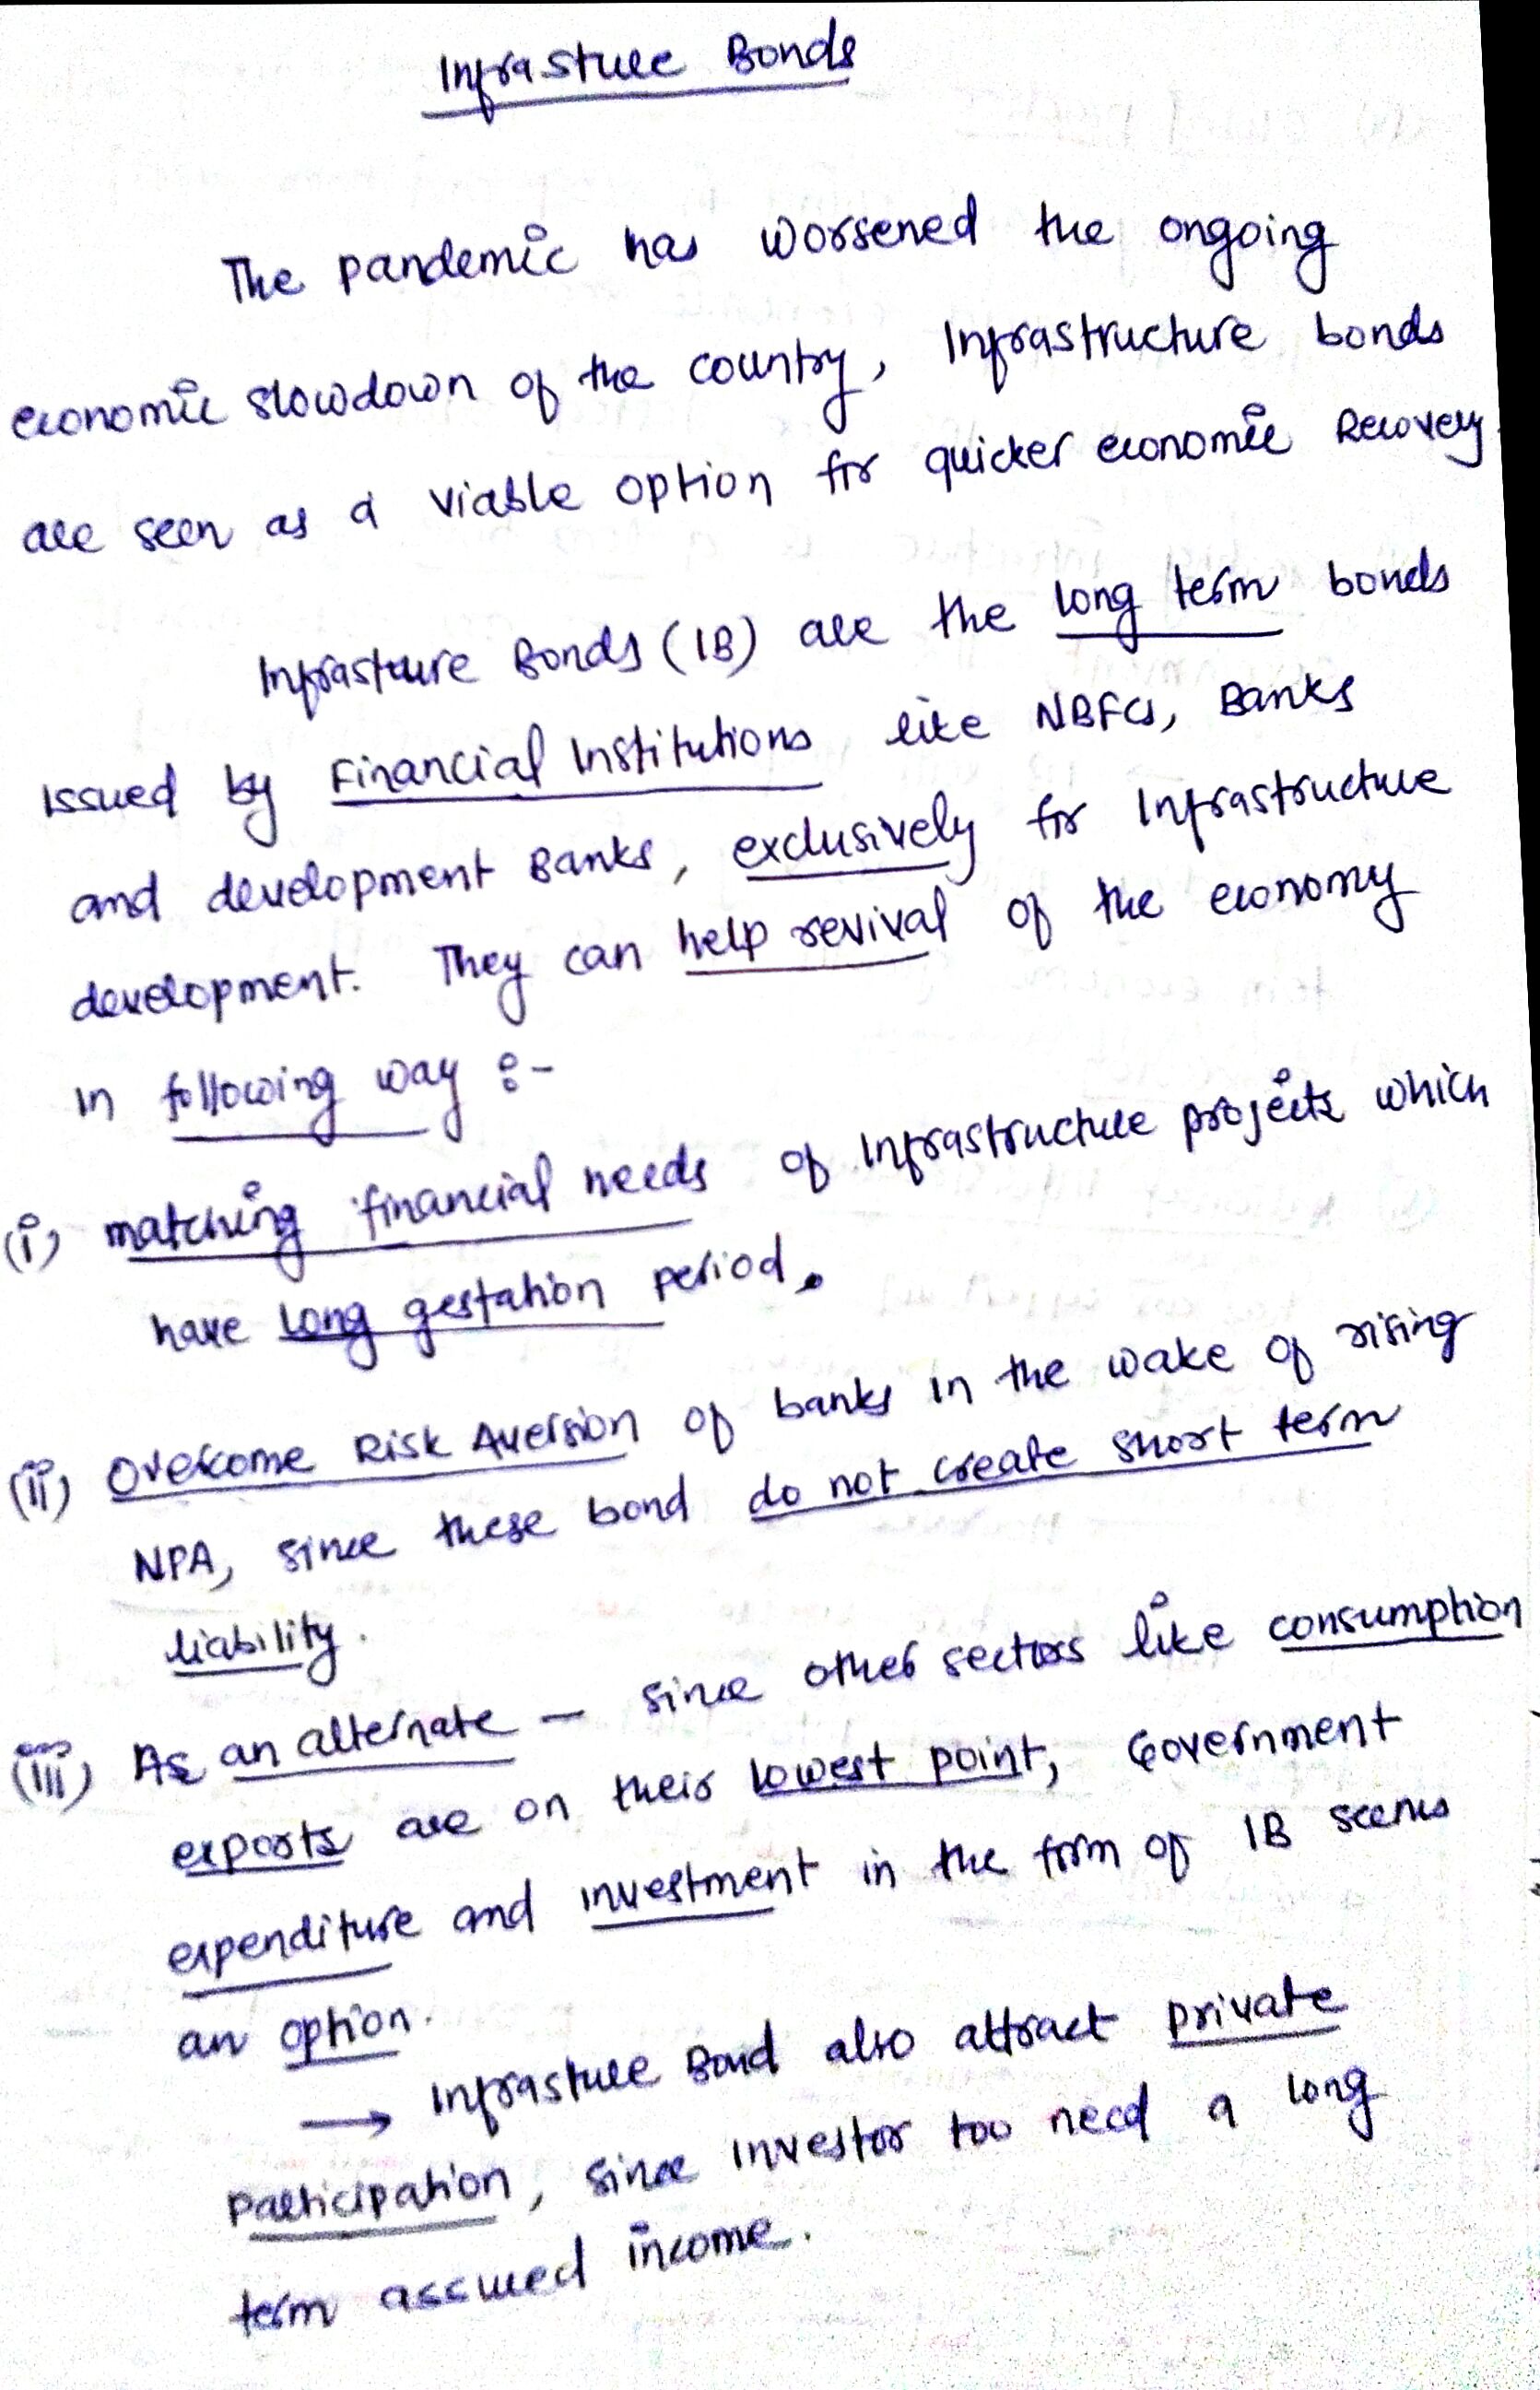 Infrasture Bonds
The pandemic has worsened the ongoing
economic slowdown of the country, Infrastructure bonds
are seen as a viable option for quicker economic Recovery.
Infrasture Bonds (IB) are the long term bonds
issued by Financial Institutions like NBFCs, Banks
and development Banks, exclusively for Infrastructure
development. They can help revival of the economy
in following way :-
(i) matching financial needs of Infrastructure projects which
have long gestation period.
(ii) Overcome Risk Aversion of banks in the wake of rising
NPA, since these bond do not create short term
liability.
(iii) As an alternate — since other sectors like consumption
exports are on their lowest point, Government
expenditure and investment in the form of IB seems
an option.
→ Infrasture Bond also attract private
participation, since investor too need a long
term assured income.